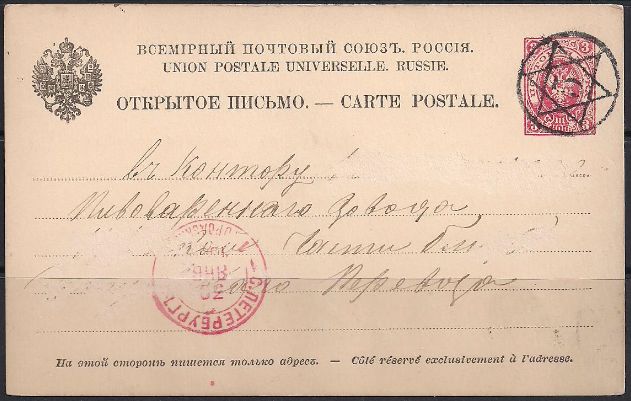 ВСЕМІРНЫЙ ПОЧТОВЫЙ СОЮЗЪ. РОССІЯ.
UNION POSTALE UNIVERSELLE. RUSSIE.
ОТКРЫТОЕ ПИСЬМО. — CARTE POSTALE.
3 3
въ Контору
Пивовареннаго Завода
Части бли
Перевоза
С.ПЕТЕРБУРГЪ
ЯНВ
На этой сторонѣ пишется только адресъ. — Côté réservé exclusivement à l'adresse.